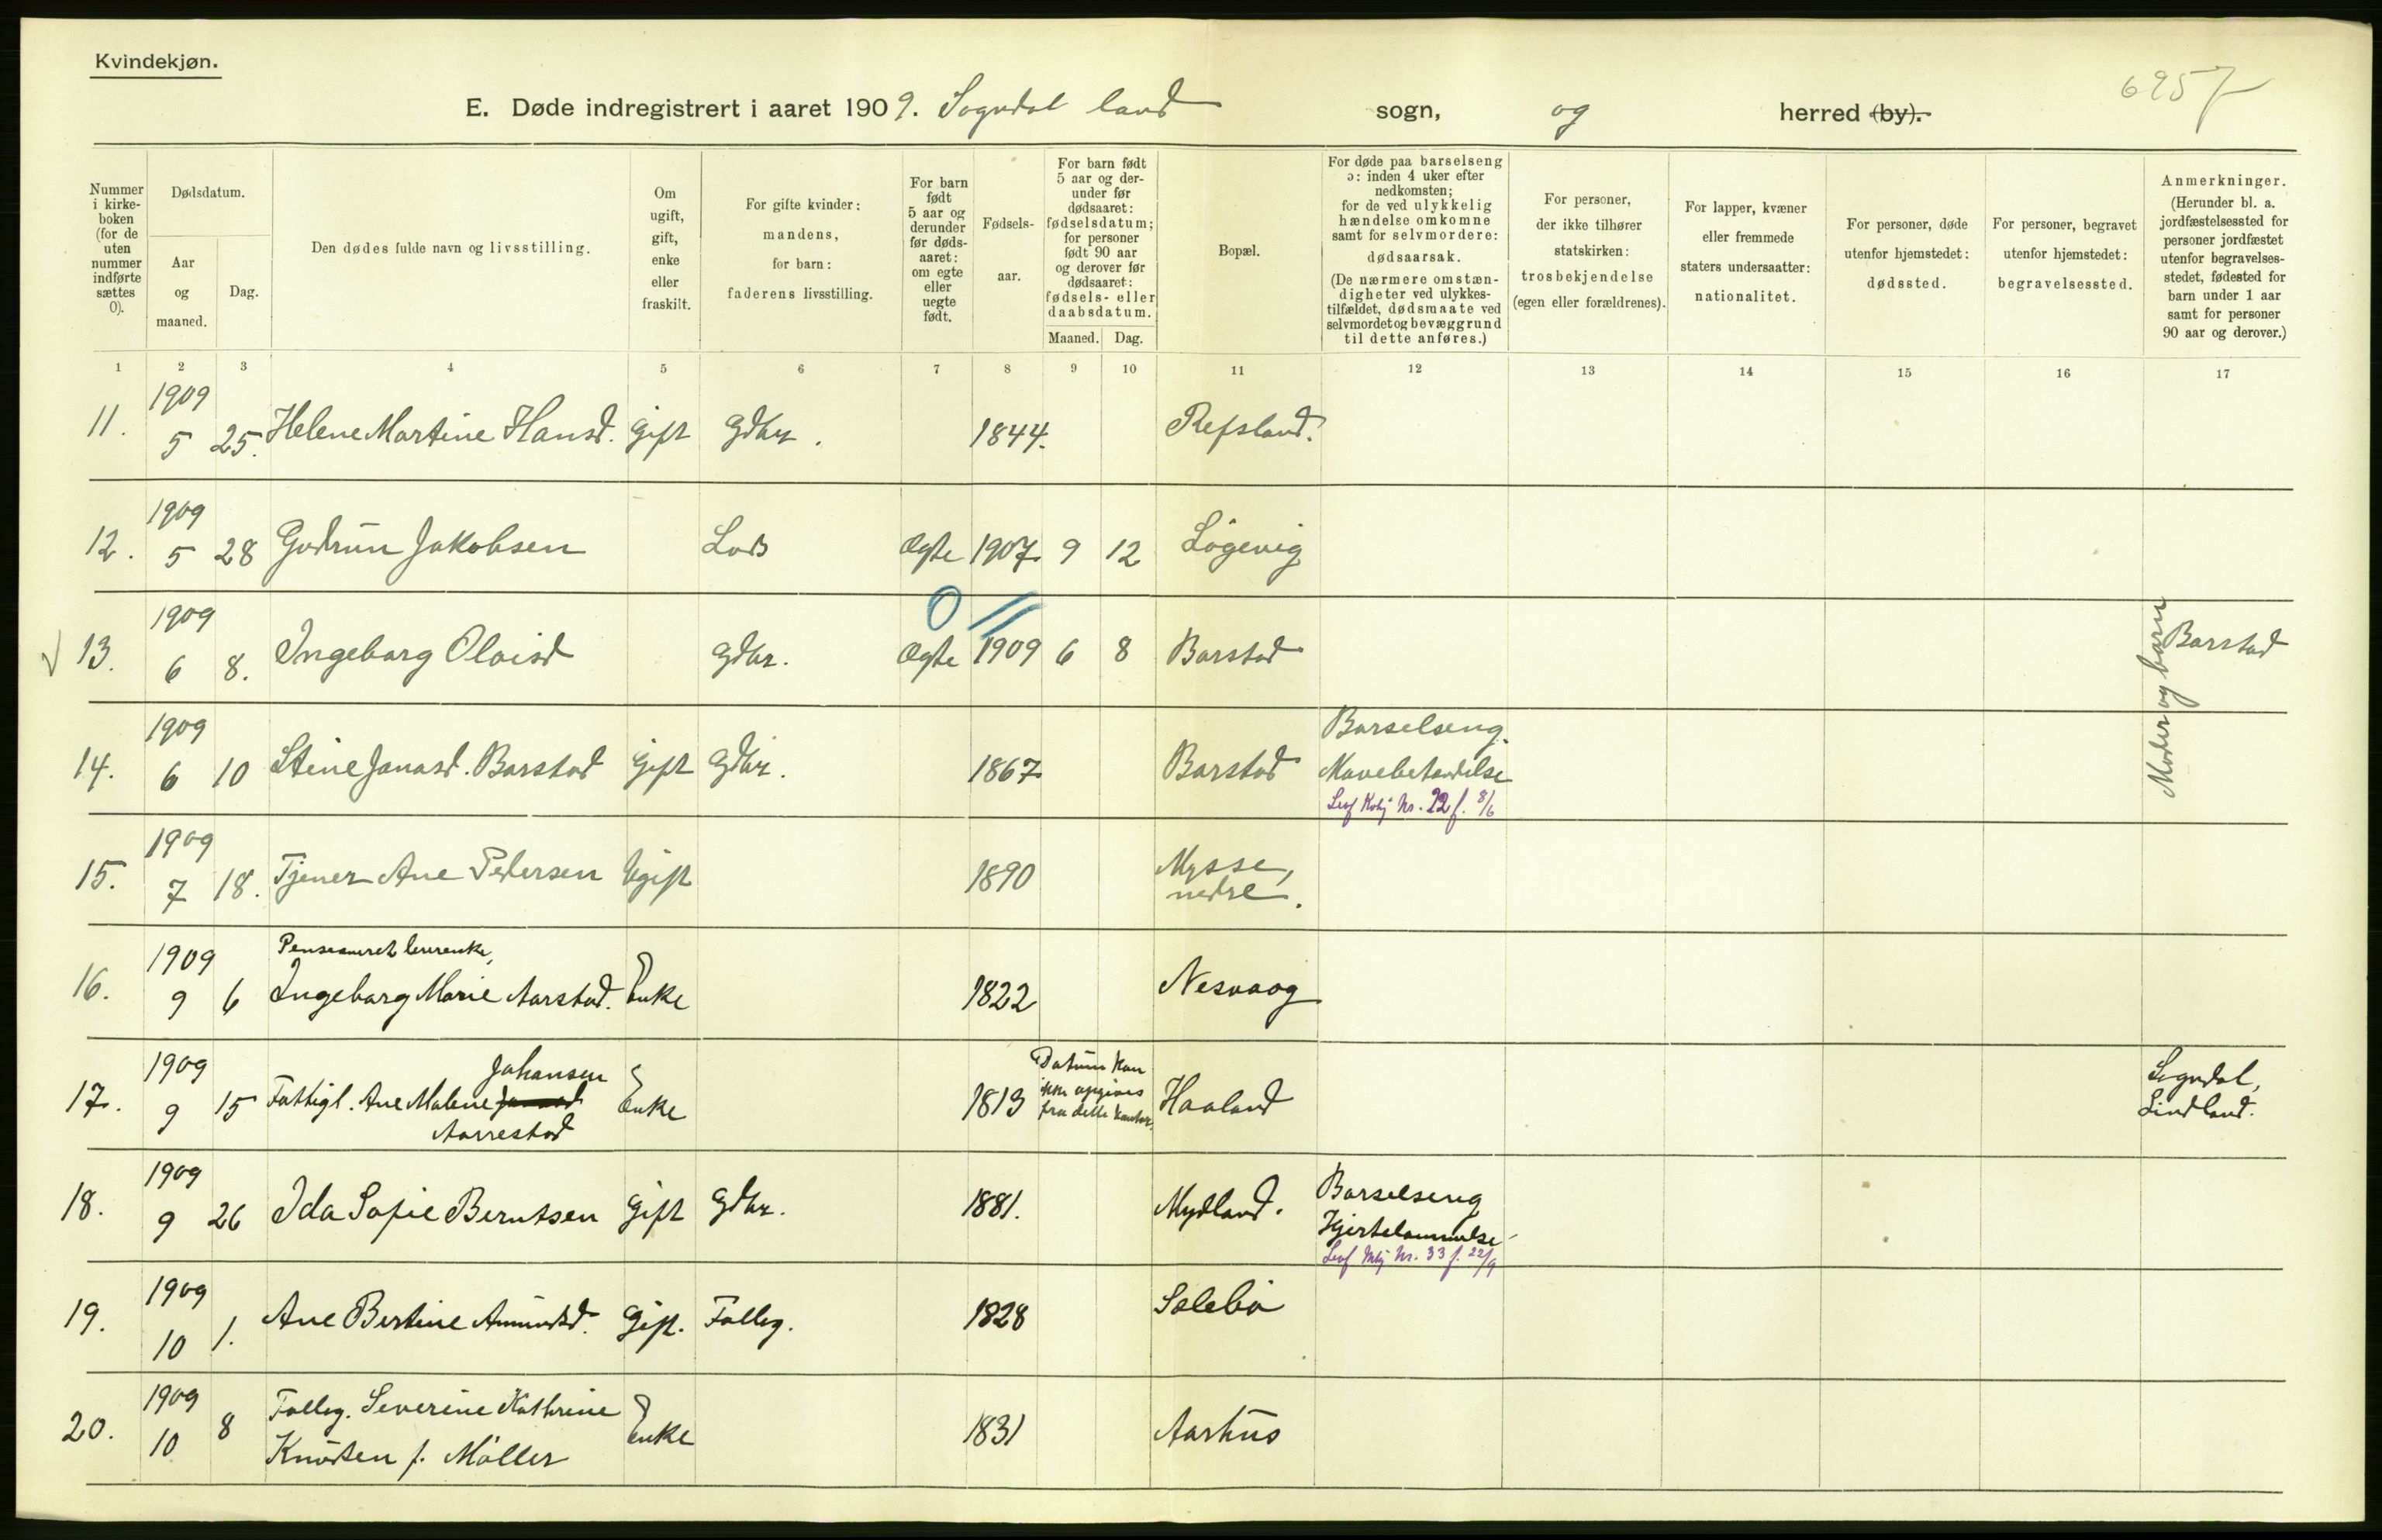 Kvindekjøn.
6957
E. Døde indregistrert i aaret 1909. Sogndal land sogn, og herred (by).
Nummer i kirkeboken (for de uten nummer indførte sættes 0).
Dødsdatum.
Aar og maaned.
Dag.
Den dødes fulde navn og livsstilling.
Om ugift, gift, enke eller fraskilt.
For gifte kvinder: mandens, for barn: faderens livsstilling.
For barn født 5 aar og derunder før dødsaaret: om egte eller uegte født.
Fødselsaar.
For barn født 5 aar og derunder før dødsaaret: fødselsdatum; for personer født 90 aar og derover før dødsaaret: fødsels- eller daabsdatum.
Maaned. Dag.
Bopæl.
For døde paa barselseng ɔ: inden 4 uker efter nedkomsten; for de ved ulykkelig hændelse omkomne samt for selvmordere: dødsaarsak. (De nærmere omstændigheter ved ulykkestilfældet, dødsmaate ved selvmordet og bevæggrund til dette anføres.)
For personer, der ikke tilhører statskirken: trosbekjendelse (egen eller forældrenes).
For lapper, kvæner eller fremmede staters undersaatter: nationalitet.
For personer, døde utenfor hjemstedet: dødssted.
For personer, begravet utenfor hjemstedet: begravelsessted.
Anmerkninger. (Herunder bl. a. jordfæstelsessted for personer jordfæstet utenfor begravelsesstedet, fødested for barn under 1 aar samt for personer 90 aar og derover.)
1 2 3 4 5 6 7 8 9 10 11 12 13 14 15 16 17
1909
11. 5 25. Helene Martine Hansd. Gift Gdbr. 1844. Refsland.
1909
12. 5 28 Gudrun Jakobsen Lods Ægte 1907 9 12 Løgevig
0 //
1909
13. 6 8. Ingeborg Olaisd Gdbr. Ægte 1909 6 8 Barstad Barstad
Moder og barn
1909 Barselseng.
14. 6 10 Stine Jonasd. Barstad Gift Gdbr. 1867 Barstad Mavebetændelse
Lev. Nr. 22 f. 8/6
1909
15. 7 18. Tjener Ane Pedersen Ugift 1890 Mysse, nedre.
1909 Pensioneret lærerenke,
16. 9 6 Ingeborg Marie Aarstad. Enke 1822 Nesvaag
1909 Johansen Datum kan
17. 9 15 Fattigl. Ane Malene Enke 1813 ikke opgives Haaland Sogndal,
Aarrestad fra dette kontor. Lindland.
1909 Barselseng
18. 9 26 Ida Sofie Berntsen Gift Gdbr. 1881. Mydland. Hjertelammelse
Lev. Nr. 33 f. 22/9
1909
19. 10 1. Ane Bertine Amundsd. Gift. Follog. 1828 Solebø
1909 Follog. Severine Kathrine
20. 10 8 Knudsen f. Møller Enke 1831 Aarhus